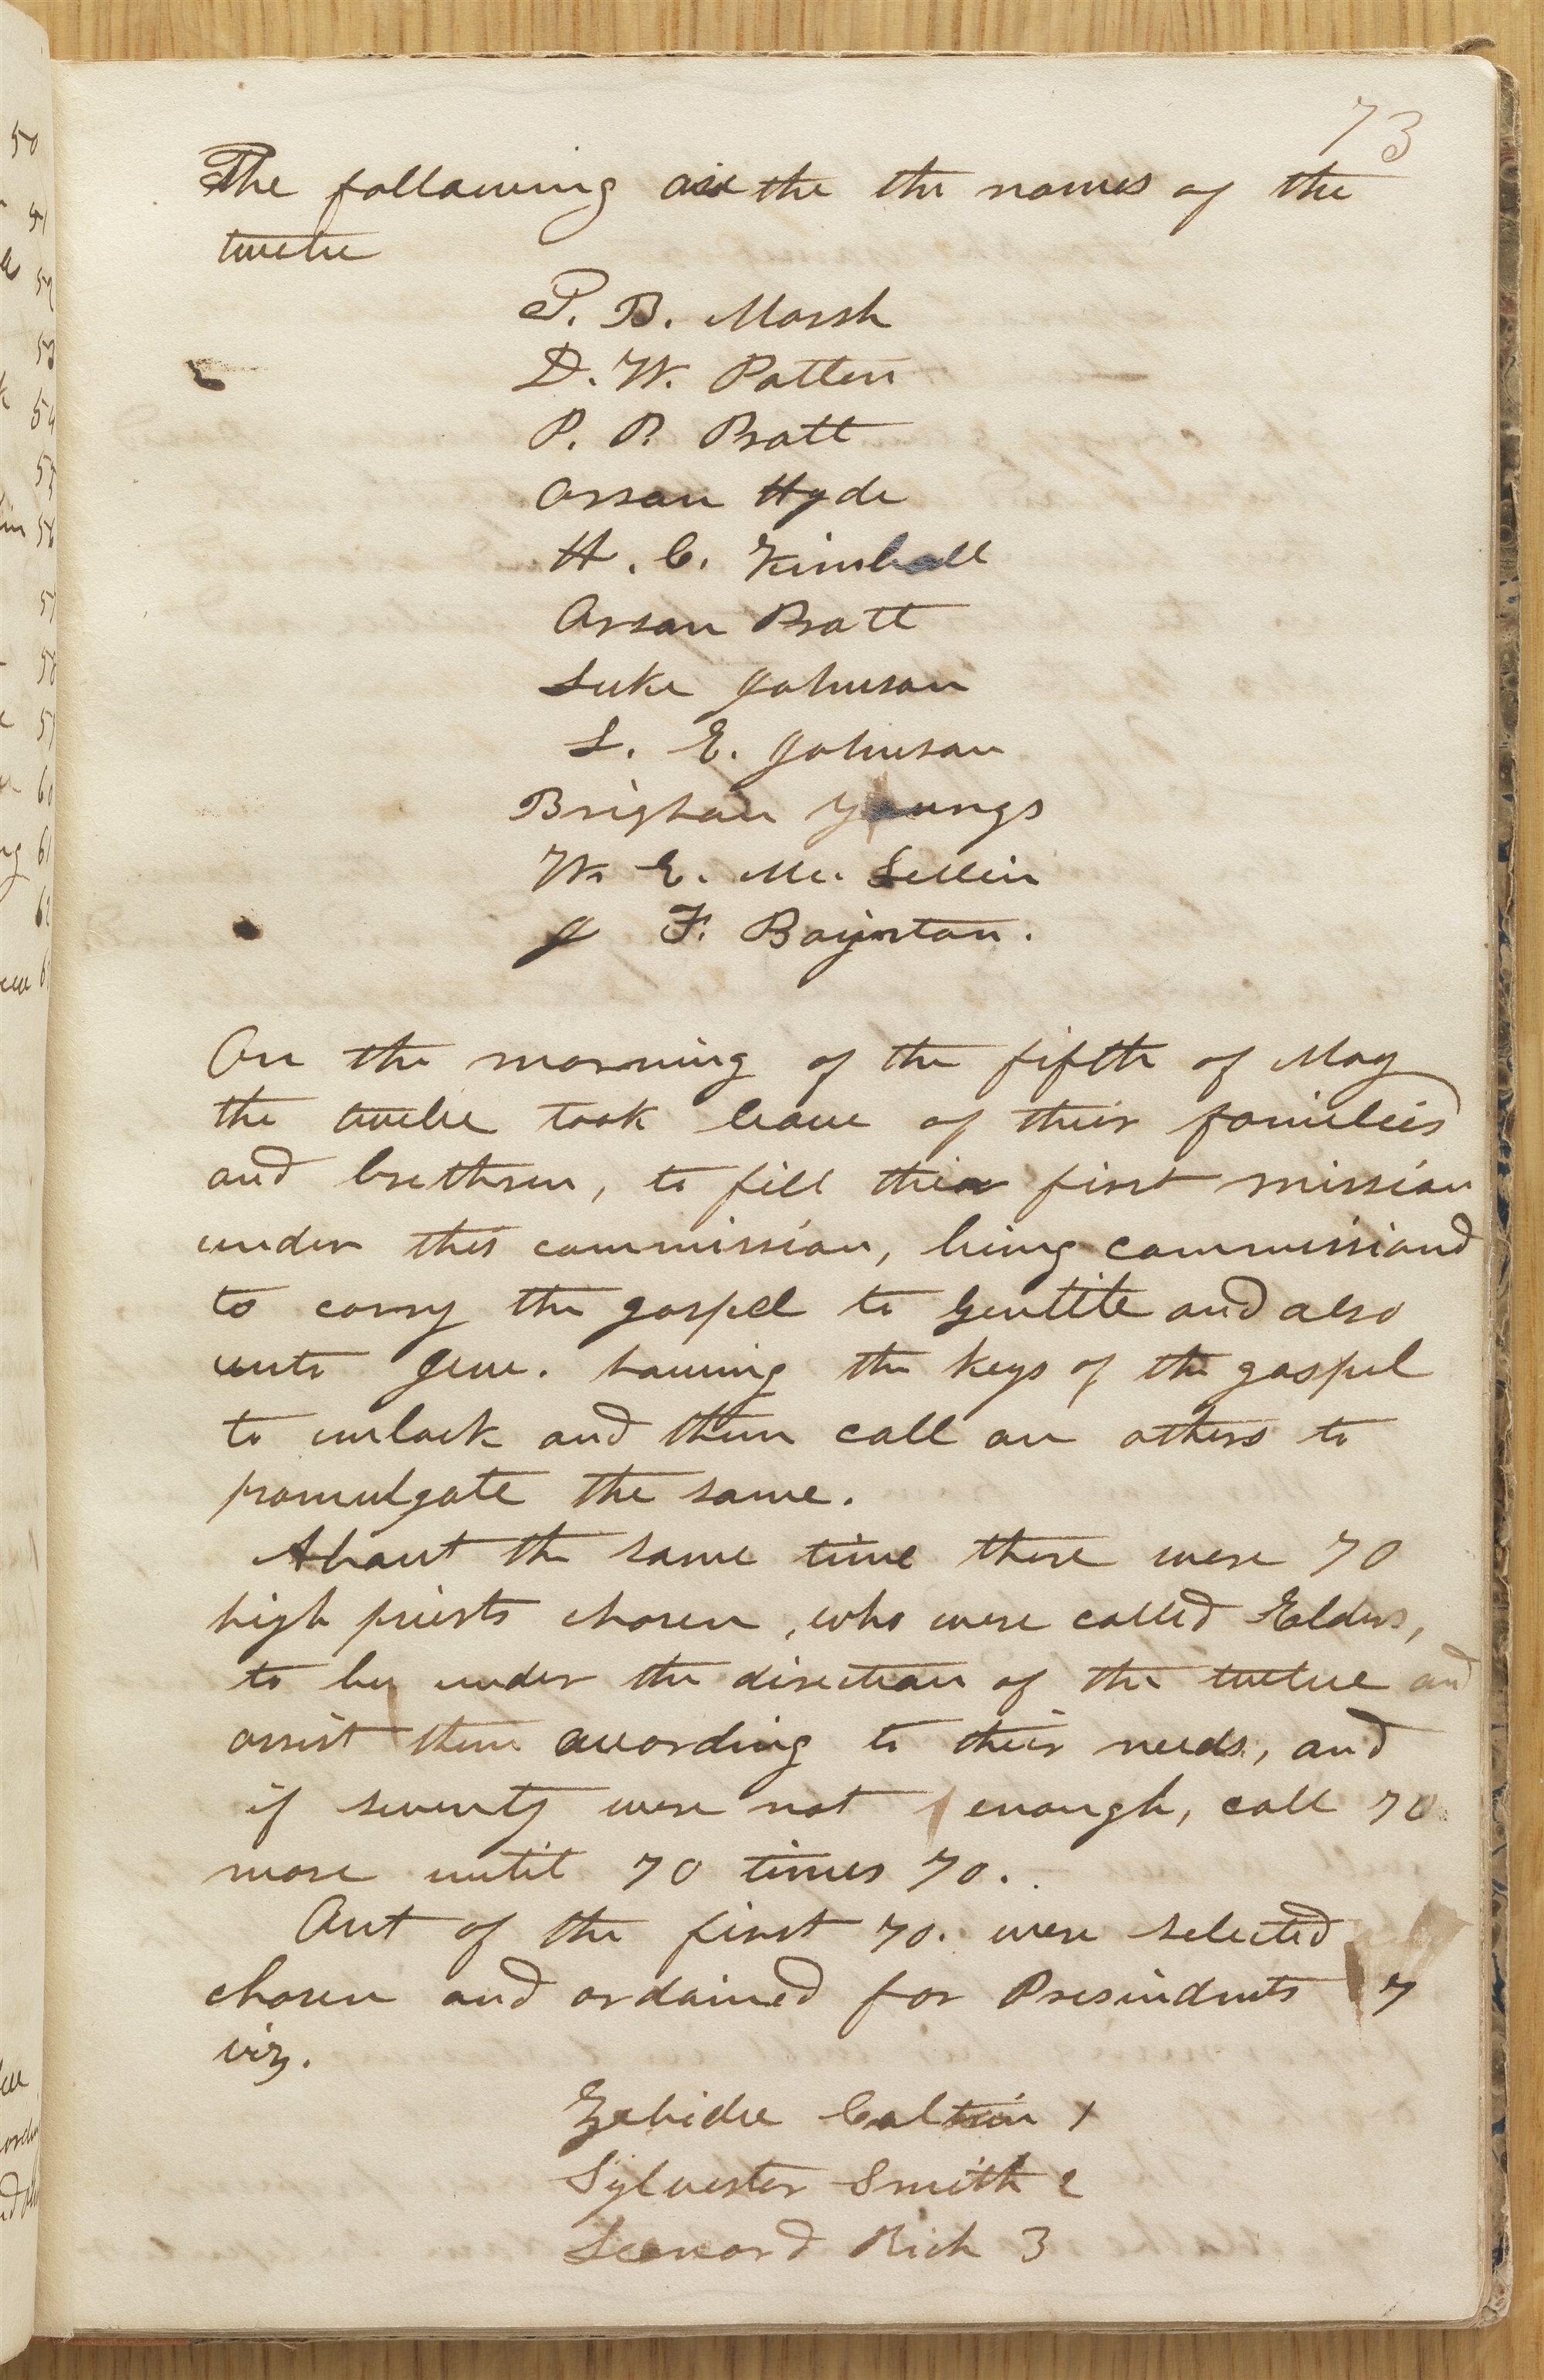 73
The following are the the names of the
twelve
T. B. Marsh
D. W. Patten
P. P. Pratt
Orson Hyde
H. C. Kimball
Orson Pratt
Luke Johnson
L. E. Johnson
Brigham Youngs
W. E. Mc. Lellin
J F. Boynton.
On the morning of the fifth of May
the twelve took leave of their families
and brethren, to fill their first mission
under this commission, being commissiond
to carry the gospel to Gentile and also
unto Jew. having the keys of the gospel
to unlock and then call on others to
promulgate the same.
About the same time there were 70
high priests chosen, who were called Elders,
to be under the direction of the twelve and
assist them according to their needs, and
if seventy were not enough, call 70
more until 70 times 70.
Out of the first 70. were selected
chosen and ordained for Presindents 7
viz.
Zebidee Coltrin 1
Sylvester Smith 2
Leonard Rich 3
50
51
52
53
54
55
56
57
58
59
60
61
62